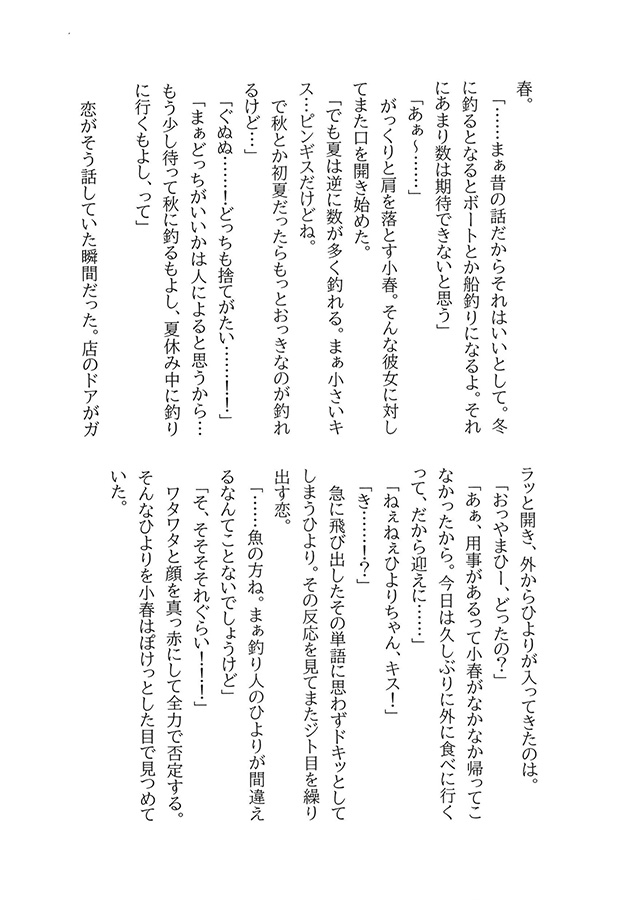 春。
「……まぁ昔の話だからそれはいいとして。冬
に釣るとなるとボートとか船釣りになるよ。それ
にあまり数は期待できないと思う」
「あぁ～……」
がっくりと肩を落とす小春。そんな彼女に対し
てまた口を開き始めた。
「でも夏は逆に数が多く釣れる。まぁ小さいキ
ス…ピンギスだけどね。
で秋とか初夏だったらもっとおっきなのが釣れ
るけど…」
「ぐぬぬ……！どっちも捨てがたい……！！」
「まぁどっちがいいかは人によると思うから…
もう少し待って秋に釣るもよし、夏休み中に釣り
に行くもよし、って」
恋がそう話していた瞬間だった。店のドアがガ
ラッと開き、外からひよりが入ってきたのは。
「おっやまひー、どったの？」
「あぁ、用事があるって小春がなかなか帰ってこ
なかったから。今日は久しぶりに外に食べに行く
って、だから迎えに……」
「ねぇねぇひよりちゃん、キス！」
「き……！？」
急に飛び出したその単語に思わずドキッとして
しまうひより。その反応を見てまたジト目を繰り
出す恋。
「……魚の方ね。まぁ釣り人のひよりが間違え
るなんてことないでしょうけど」
「そ、そそそれぐらい！！！」
ワタワタと顔を真っ赤にして全力で否定する。
そんなひよりを小春はぽけっとした目で見つめて
いた。